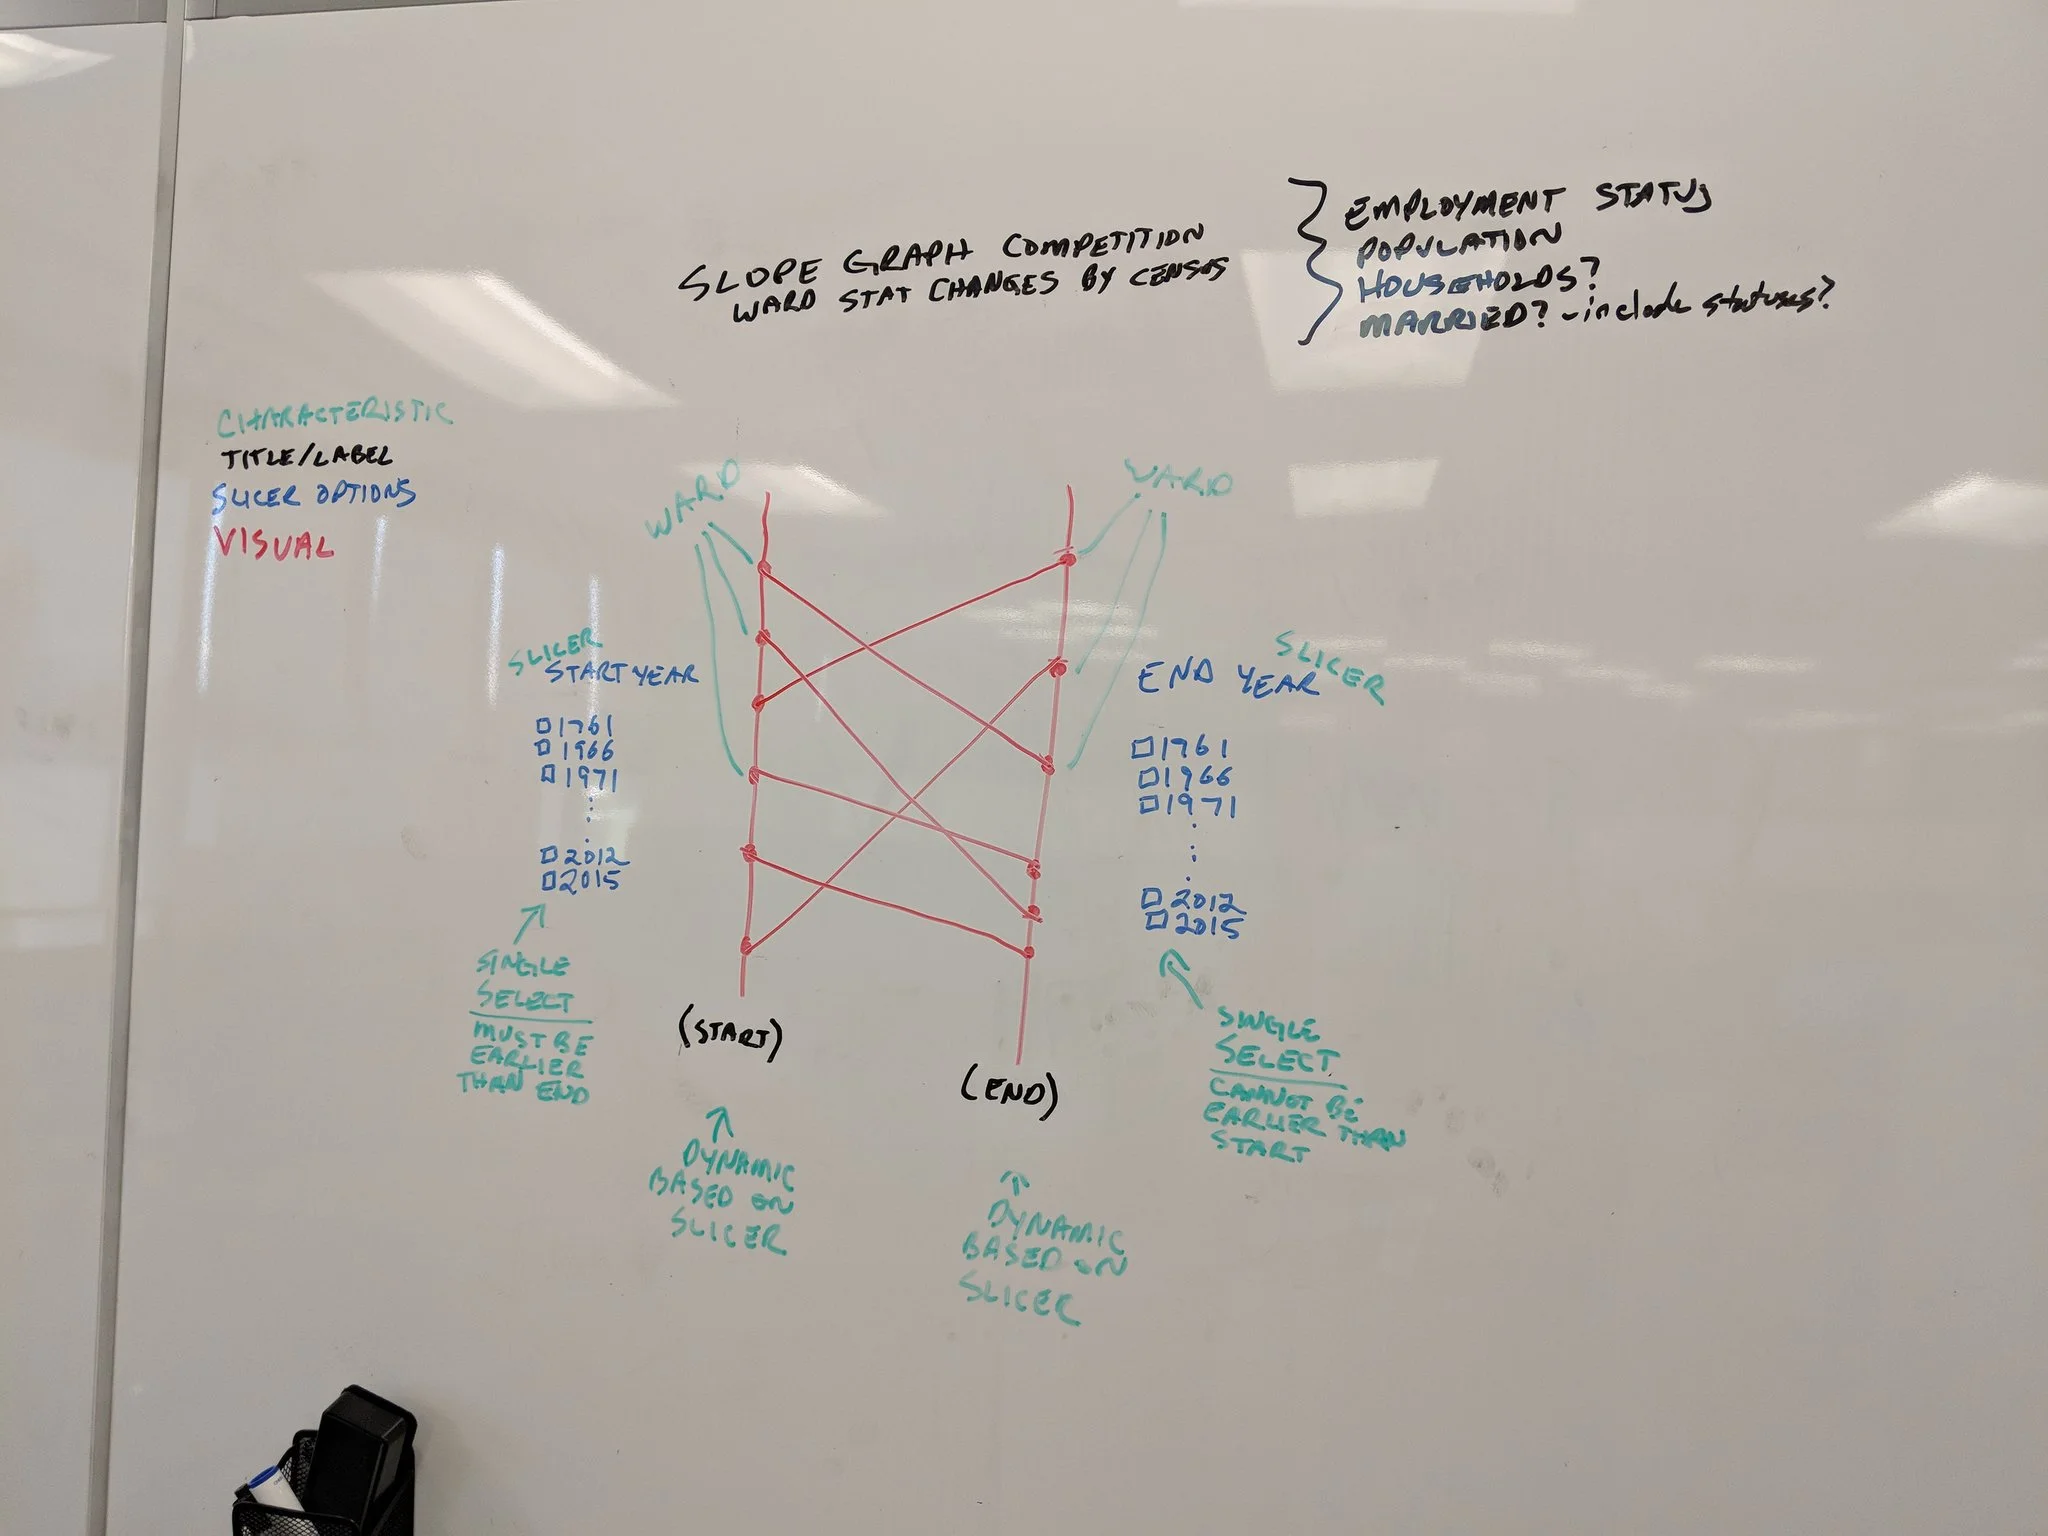 SLOPE GRAPH COMPETITION
WARD STAT CHANGES BY CENSUS
EMPLOYMENT STATUS
POPULATION
HOUSEHOLDS?
MARRIED? - include statuses?
CHARACTERISTIC
TITLE/LABEL
SLICER OPTIONS
VISUAL
WARD
WARD
SLICER
START YEAR
□ 1961
□ 1966
□ 1971
□ 2012
□ 2015
SINGLE
SELECT
MUST BE
EARLIER
THAN END
SLICER
END YEAR
□ 1961
□ 1966
□ 1971
□ 2012
□ 2015
SINGLE
SELECT
CANNOT BE
EARLIER THAN
START
(START)
DYNAMIC
BASED ON
SLICER
(END)
DYNAMIC
BASED ON
SLICER